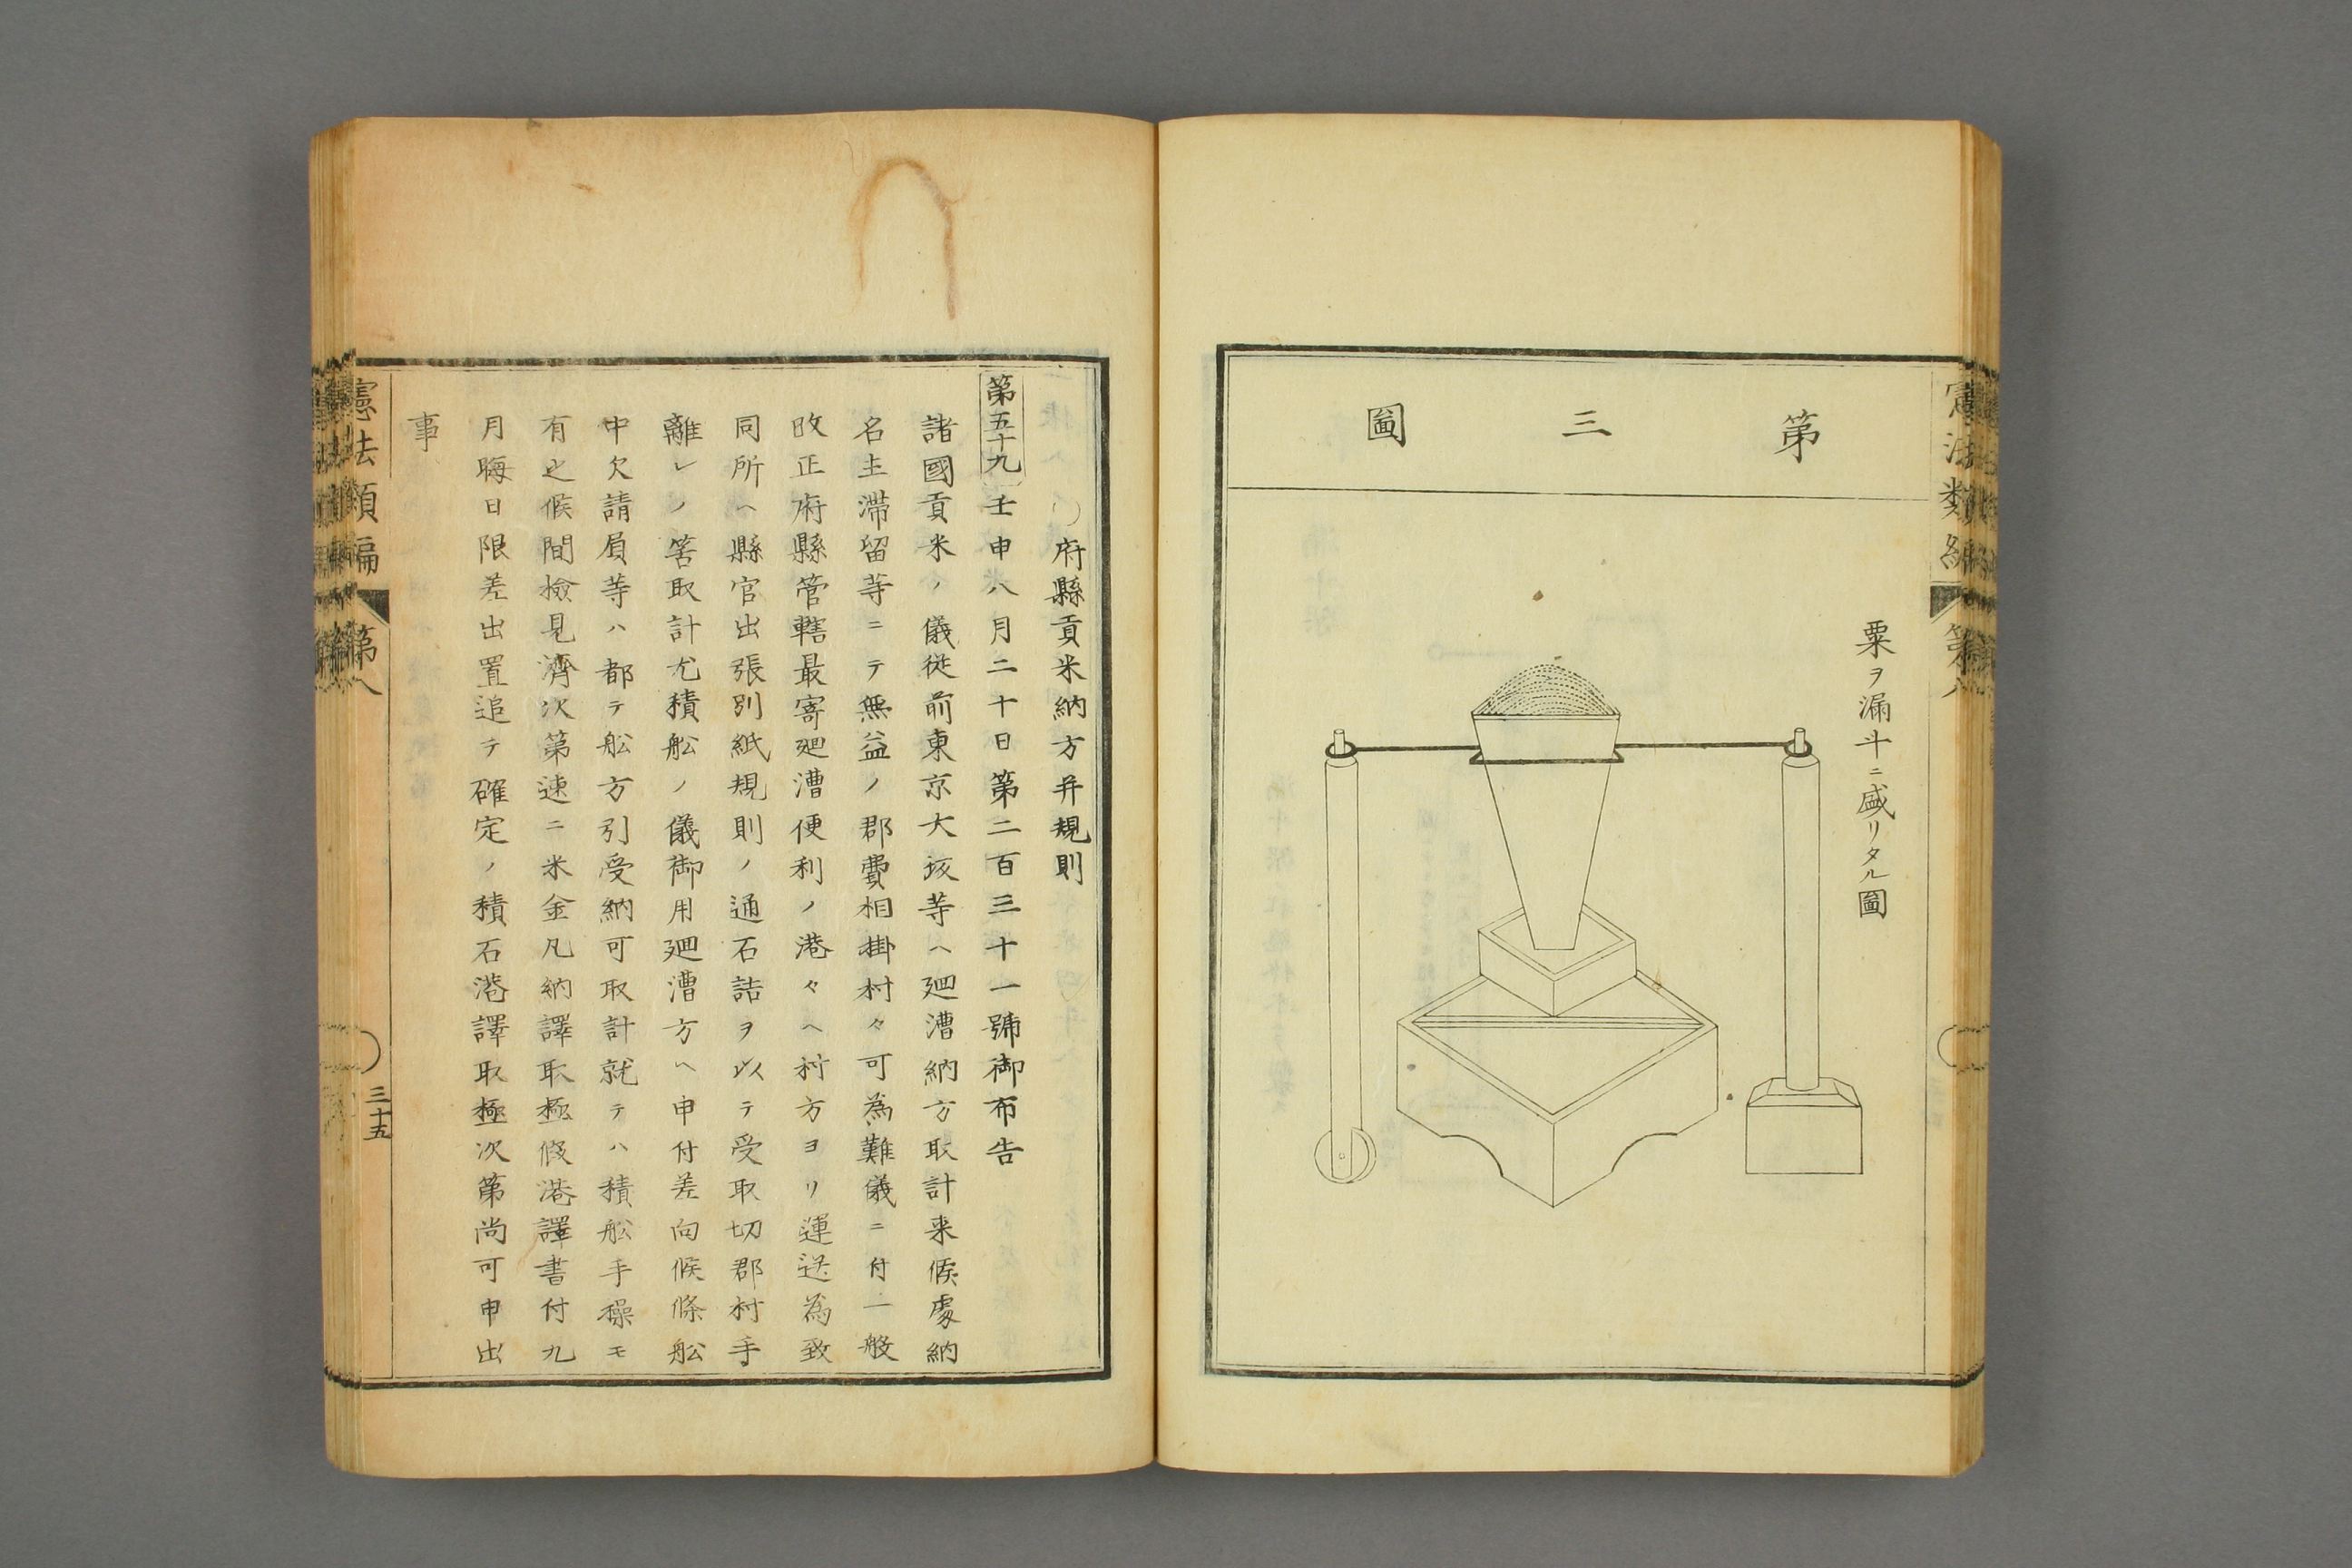 第三圖
粟ヲ漏斗ニ盛リタル圖
憲法類編
第八
府縣貢米納方并規則
第五十九 壬申八月二十日第二百三十一號御布告
諸國貢米ノ儀從前東京大坂等ヘ廻漕納方取計来候處納
名主滞留等ニテ無益ノ郡費相掛村々可為難儀ニ付一般
改正府縣管轄最寄廻漕便利ノ港々ヘ村方ヨリ運送為致
同所ヘ縣官出張別紙規則ノ通石詰ヲ以テ受取切郡村手
離レノ筈取計尤積舩ノ儀御用廻漕方ヘ申付差向候條舩
中欠請負等ハ都テ舩方引受納可取計就テハ積舩手操モ
有之候間檢見濟次第速ニ米金凡納譯取極假港譯書付九
月晦日限差出置追テ確定ノ積石港譯取極次第尚可申出
事
憲法類編
第八
三十五